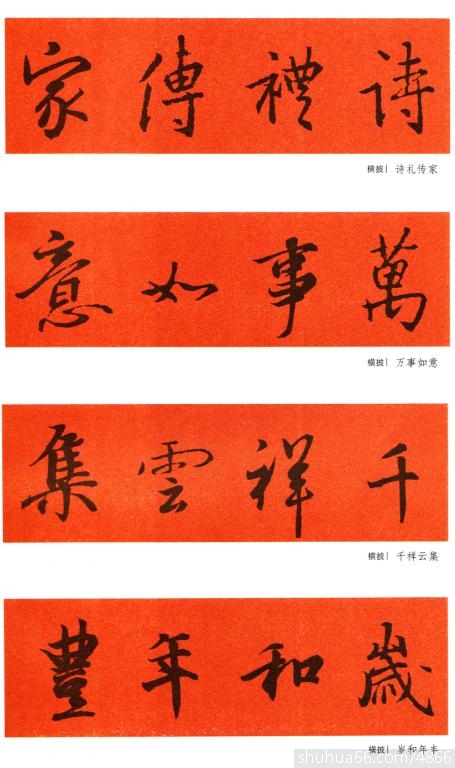 詩禮傳家
横披| 诗礼传家
萬事如意
横披| 万事如意
千祥雲集
横披| 千祥云集
歲和年豐
横披| 岁和年丰
shuhua66.com/4866